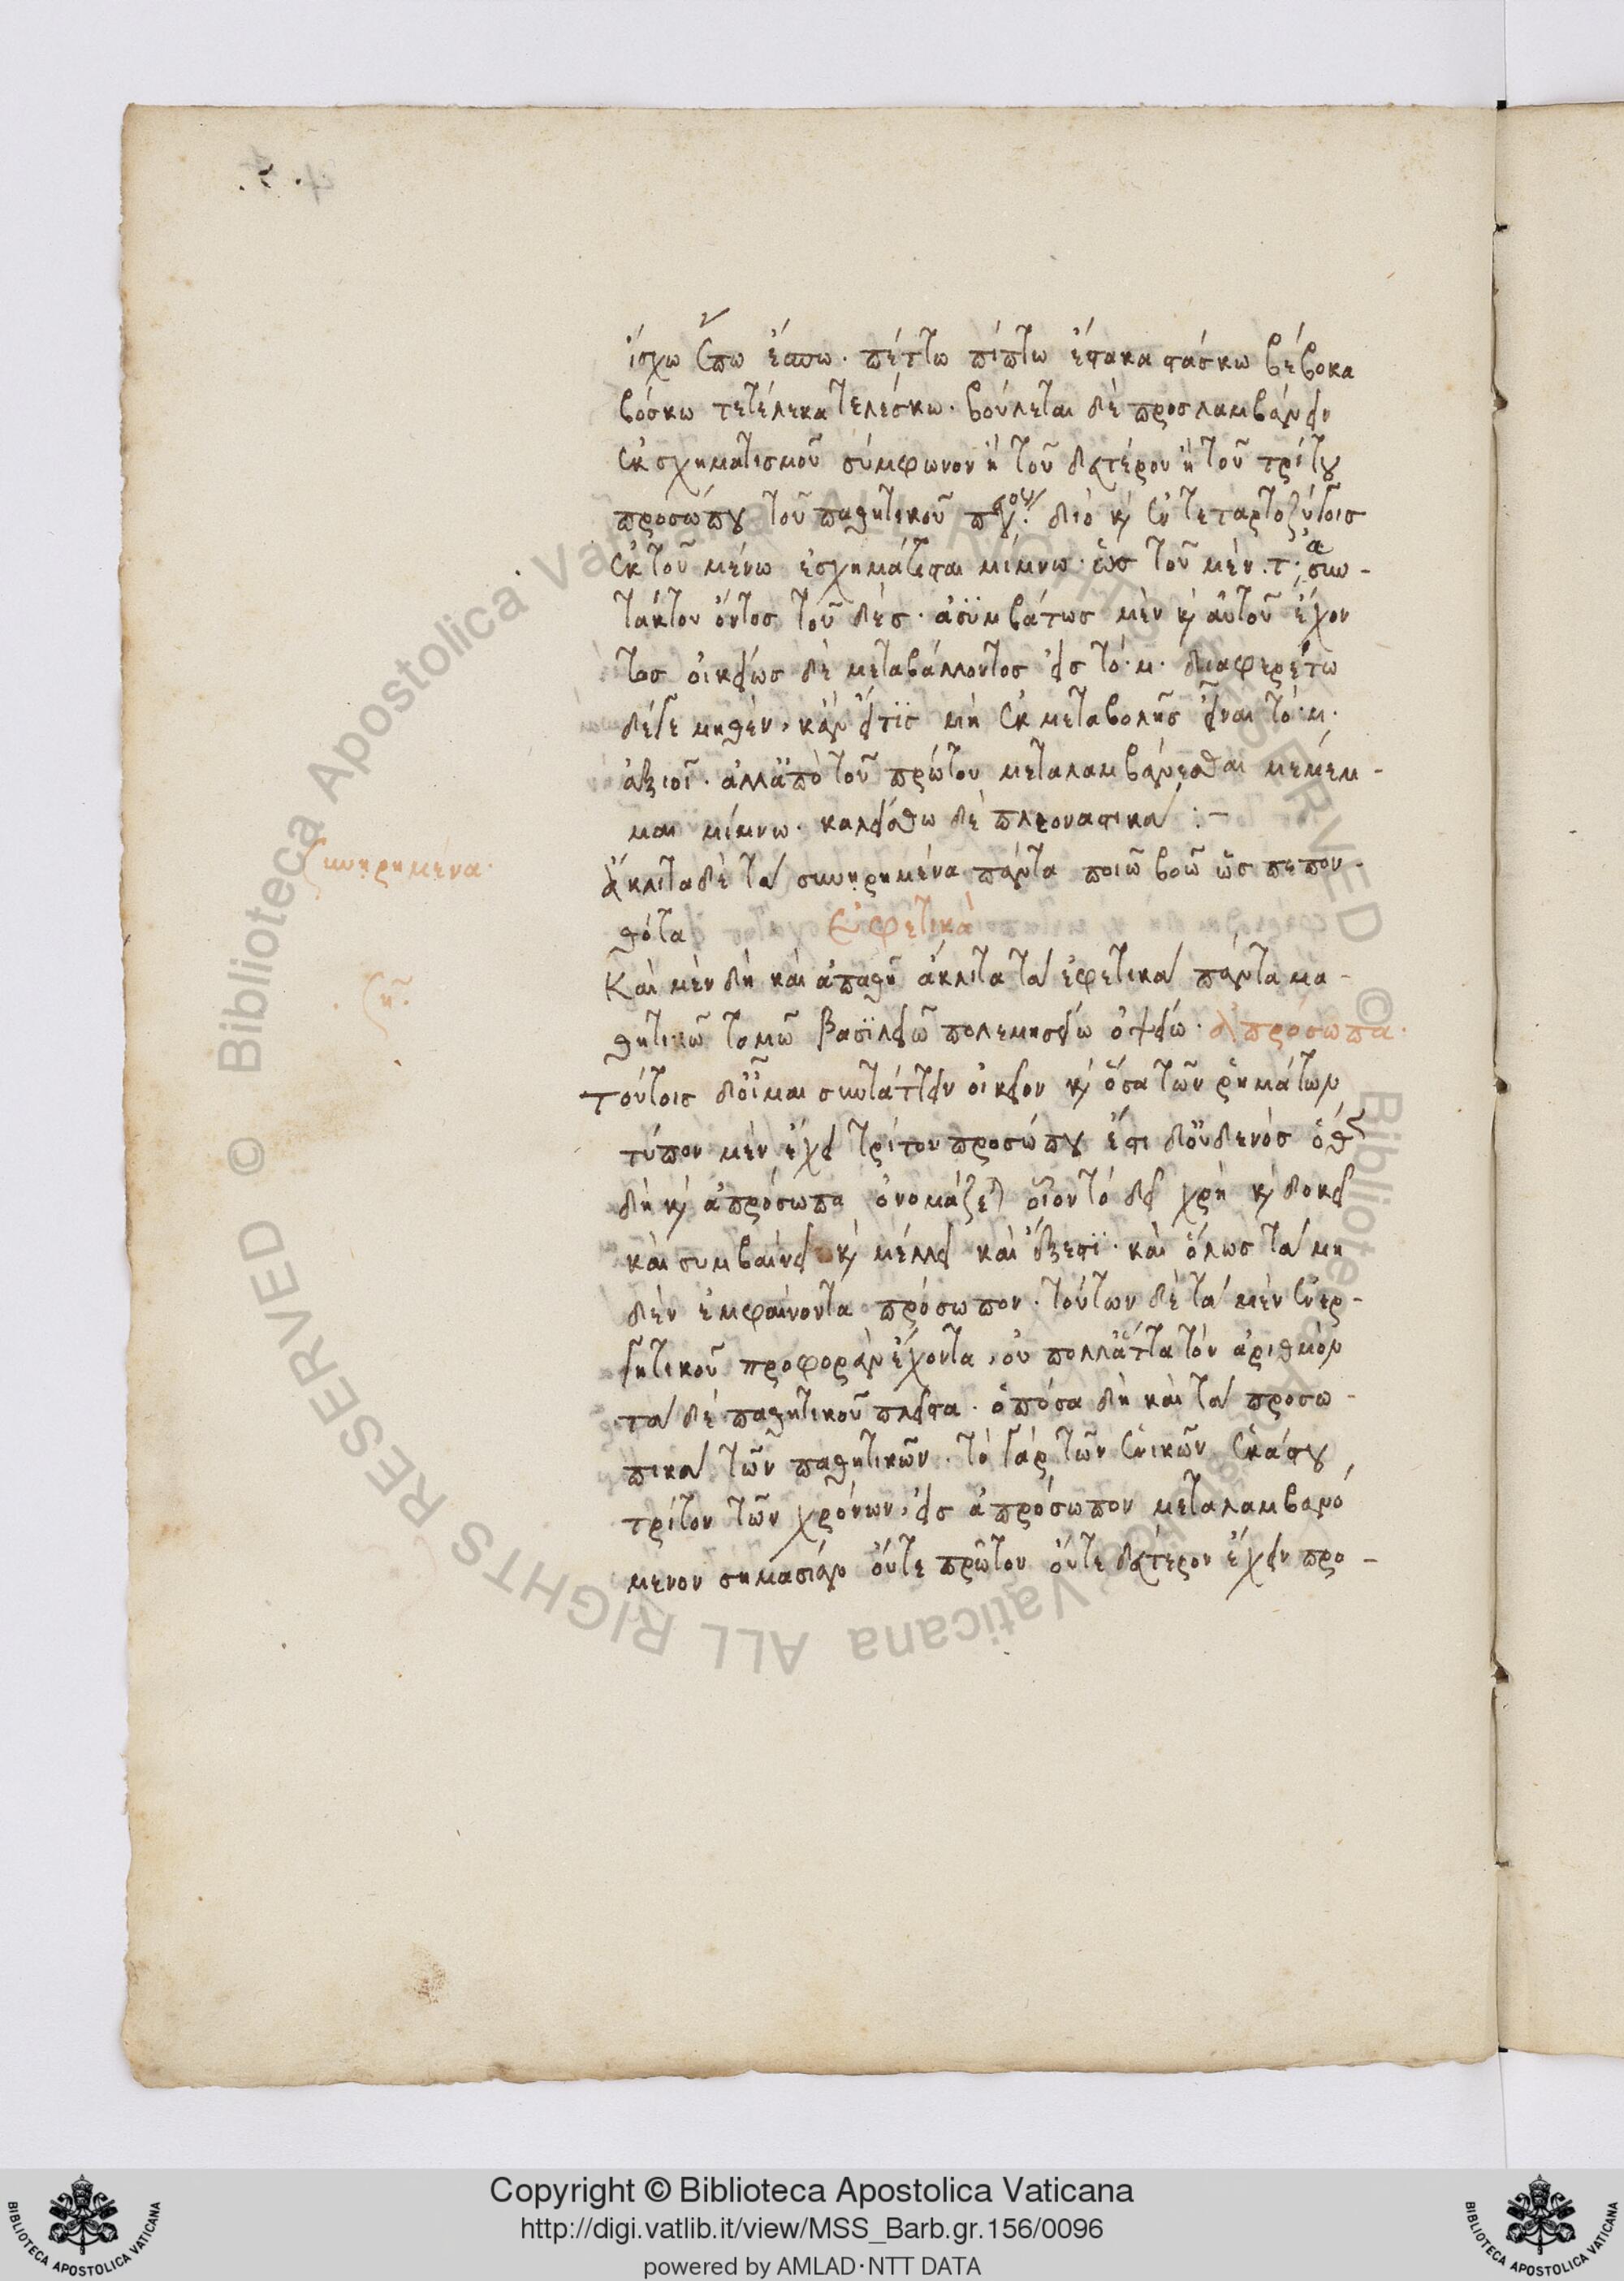 ἴσχω ἕπω ἕσπω· πέττω πίπτω ἔφακα φάσκω βέβοκα
βόσκω τετέλεκα τελέσκω· βούλεται δὲ προσλαμβάνειν
ἐκ σχηματισμοῦ σύμφωνον ἢ τοῦ δευτέρου ἢ τοῦ τρίτου
προσώπου τοῦ παθητικοῦ διὸ καὶ ἐν
ἐκ τοῦ μένω ἐσχημάτισται μίμνω· ὡς τοῦ μὲν ·τ·
τάκτου ὄντος τοῦ δὲ σ· ἀσϋμβάτως μὲν καὶ αὐτοῦ ἔχον
τος οἰκείως δὲ μεταβάλλοντος εἰς τό·μ· διαφερέτω
δέ γε μηθὲν, κἂν εἴ τϊς μὴ ἐκ μεταβολῆς εἶναι τό·μ·
ἀξιοῖ· ἀλλ' ἀπὸ τοῦ πρώτου μεταλαμβάνεσθαι μέμεμ-
μαι μίμνω· καλείσθω δὲ πλεοναστικά :-
Συνηρημένα·
ἄκλιτα δὲ τὰ συνηρημένα πάντα ποιῶ βοῶ ὡς πεπον-
θότα Ἐφετικά
Καὶ μὲν δὴ καὶ ἀπαθῆ ἄκλιτα τὰ ἐφετικὰ πάντα μα-
θητικῶ τομῶ βασϊλειῶ πολεμησείω ὀψείω· Ἀπρόσωπα·
τούτοις δ' οἶμαι συντάττειν οἰκεῖον καὶ ὅσα τῶν ῥημάτων
τύπον μὲν ἔχει τρίτου προσώπου ἔστι δ' οὐδενὸς ὅθεν
δὴ καὶ ἀπρόσωπα ὀνομάζεται οἷον τὸ δεῖ χρὴ καὶ δοκεῖ
καὶ συμβαίνει καὶ μέλλει καὶ ἔξεστϊ· καὶ ὅλως τὰ μη
δὲν ἐμφαίνοντα πρόσωπον· τούτων δὲ τὰ μὲν ἐνερ-
γητικοῦ προφορὰν ἔχοντα, οὐ πολλ' ἄττα τὸν ἀριθμὸν
τὰ δὲ παθητικοῦ πλεῖστα· ὁπόσα δὴ καὶ τὰ προσω-
πικὰ τῶν παθητικῶν· τὸ γὰρ τῶν ἑνικῶν ἑκάστου
τρίτον τῶν χρόνων, εἰς ἀπρόσωπον μεταλαμβανό
μενον σημασίαν οὔτε πρῶτον οὔτε δεύτερον ἔχειν προ-
Copyright © Biblioteca Apostolica Vaticana
http://digi.vatlib.it/view/MSS_Barb.gr.156/0096
powered by AMLAD·NTT DATA